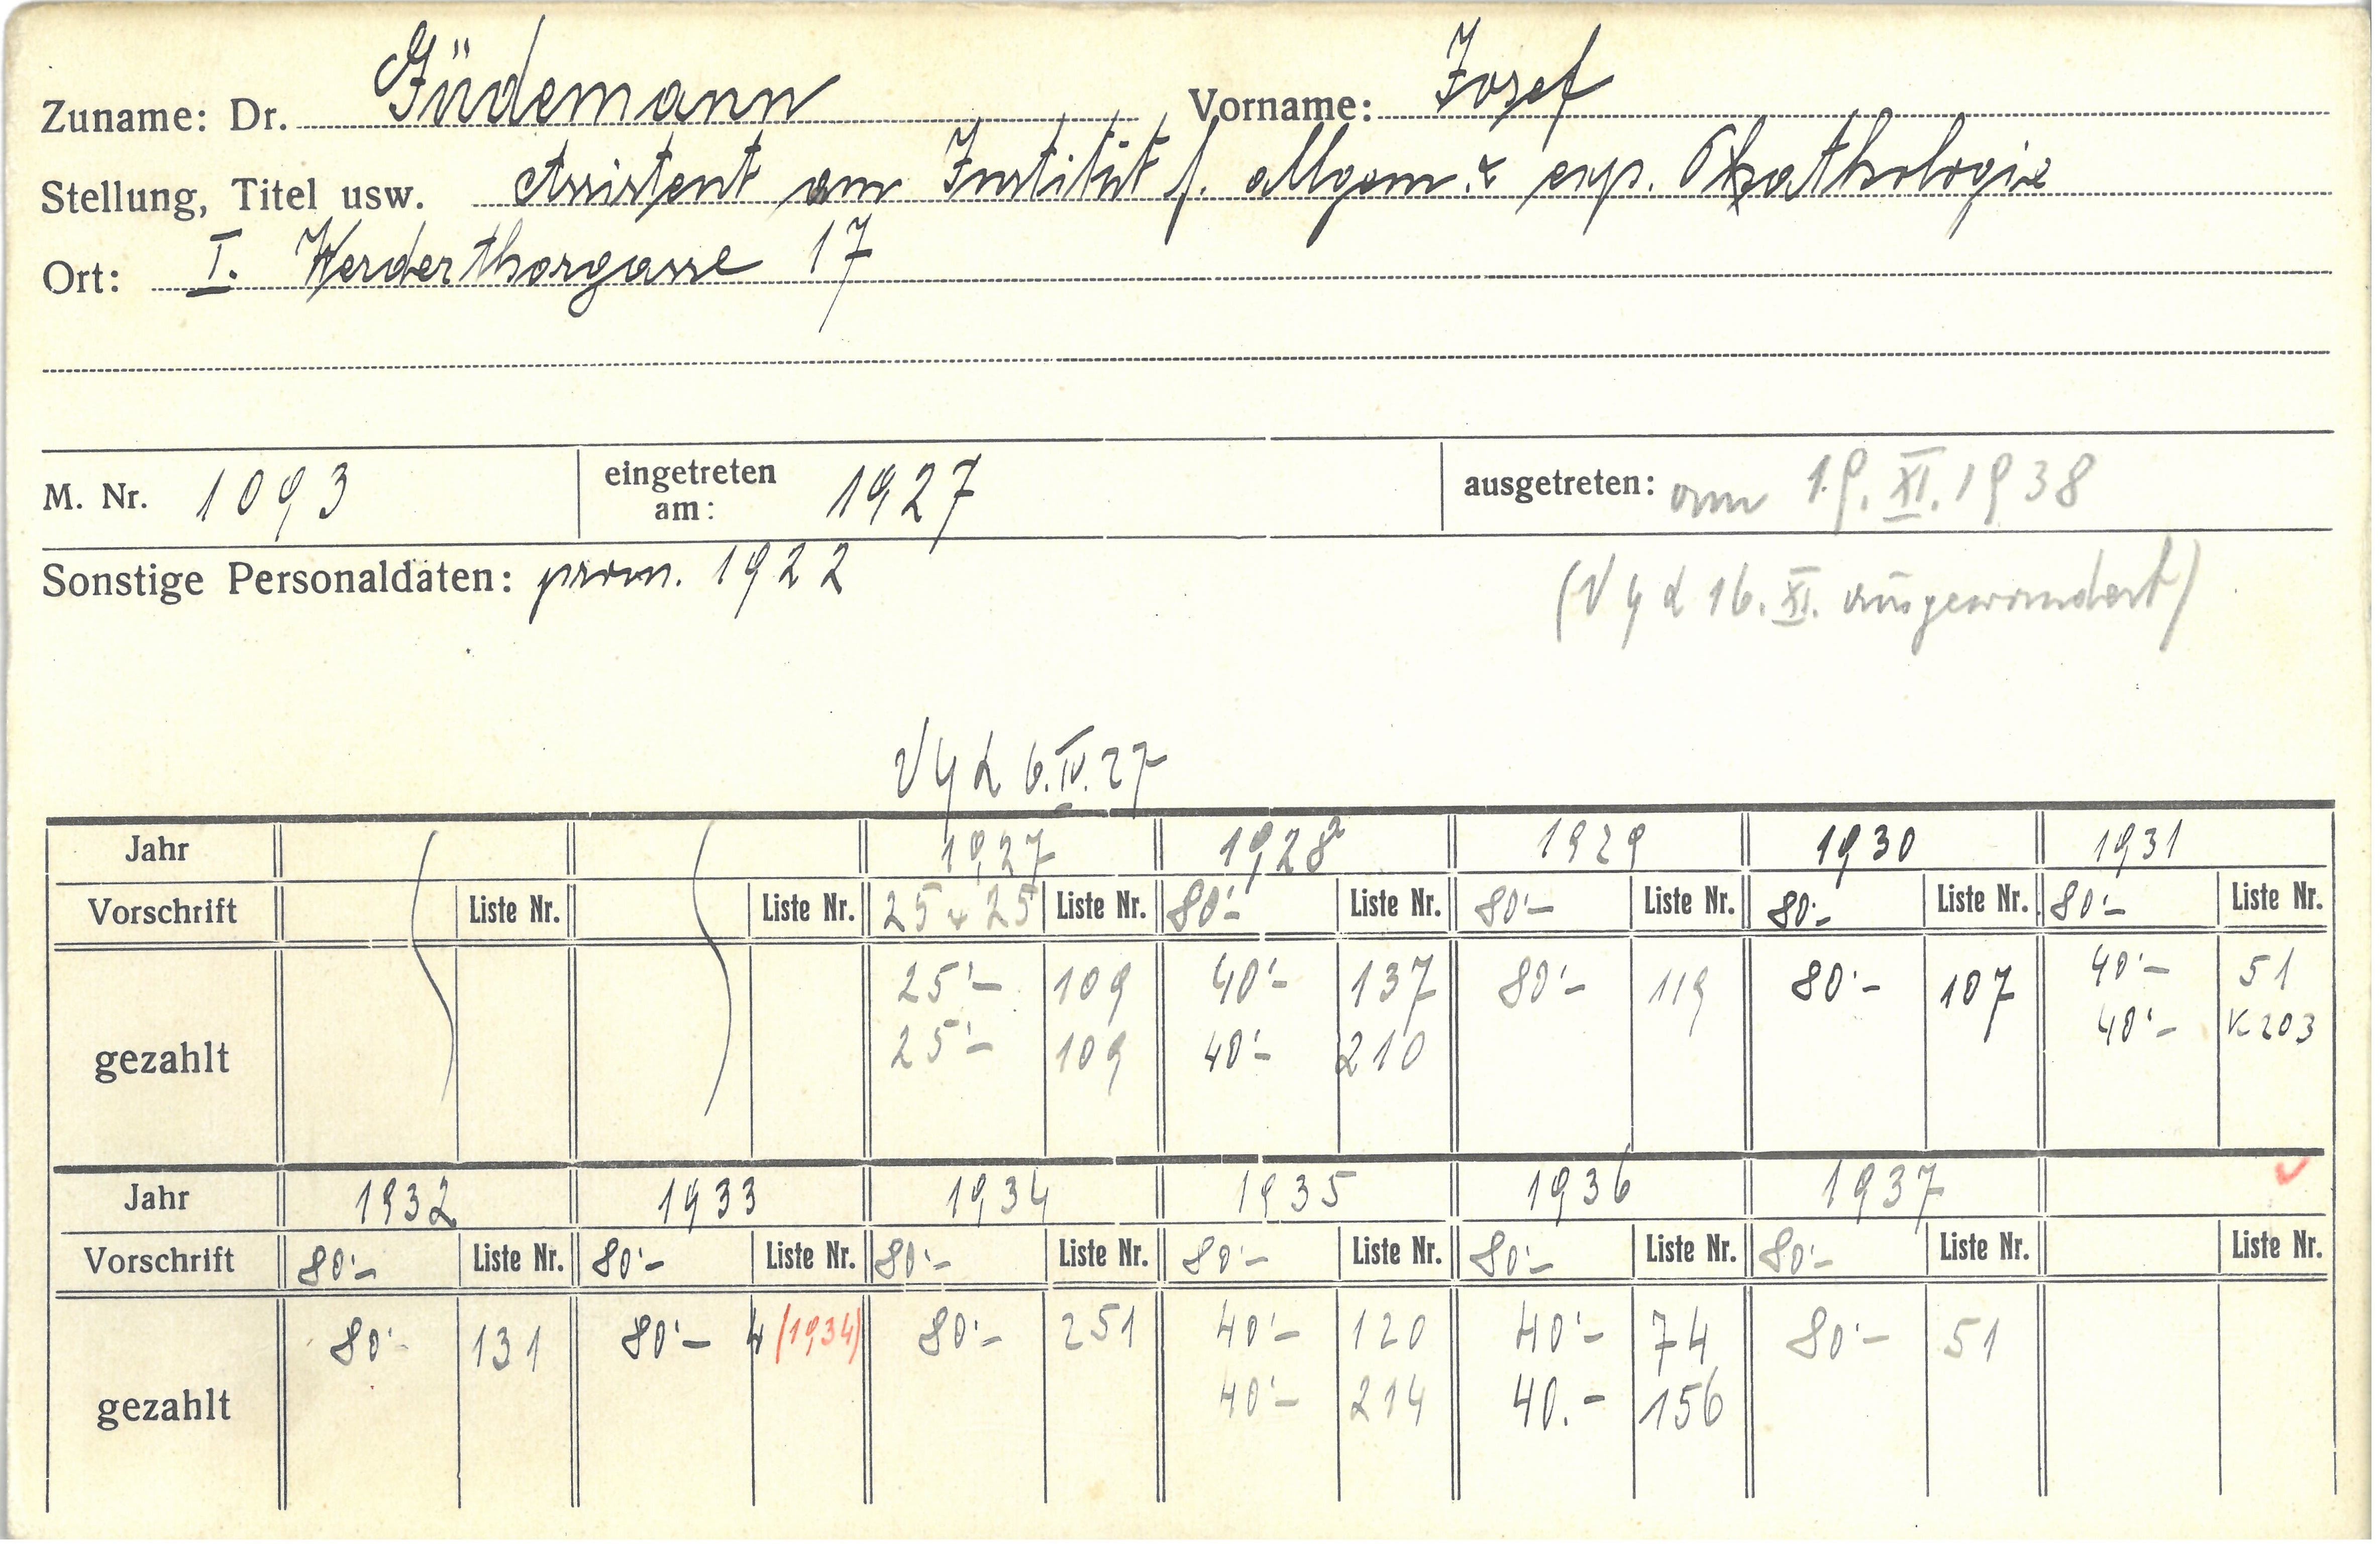 Zuname: Dr. Güdemann Vorname: Josef
Stellung, Titel usw. Assistent am Institut f. allgem. & exp. Pathologie
Ort: I. Werderthorgasse 17
M. Nr. 1093 eingetreten am: 1927 ausgetreten: am 19. XI. 1938
Sonstige Personaldaten: prom. 1922 16. XI. ausgewandert)
6. IV. 27
Jahr 1927 1928 1929 1930 1931
Vorschrift Liste Nr. Liste Nr. 25 + 25 Liste Nr. 80'- Liste Nr. 80'- Liste Nr. 80'- Liste Nr. 80'- Liste Nr.
25'- 109 40'- 137 80'- 119 80'- 107 40'- 51
gezahlt 25'- 109 40'- 210 40'- K 203
Jahr 1932 1933 1934 1935 1936 1937
Vorschrift 80'- Liste Nr. 80'- Liste Nr. 80'- Liste Nr. 80'- Liste Nr. 80'- Liste Nr. 80'- Liste Nr. Liste Nr.
80'- 131 80'- 4 (1934) 80'- 251 40'- 120 40'- 74 80'- 51
gezahlt 40'- 214 40.- 156